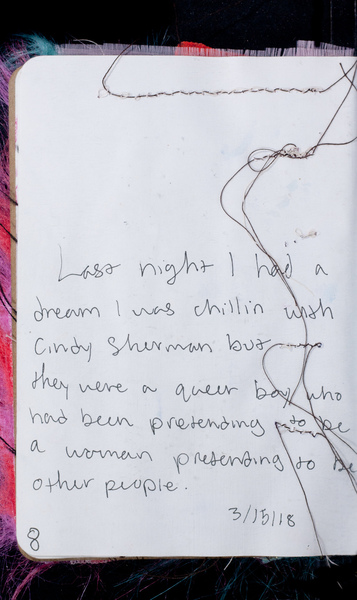 Last night I had a
dream I was chillin with
Cindy Sherman but
they were a queer boy who
had been pretending to be
a woman pretending to be
other people.
3/15/18
8